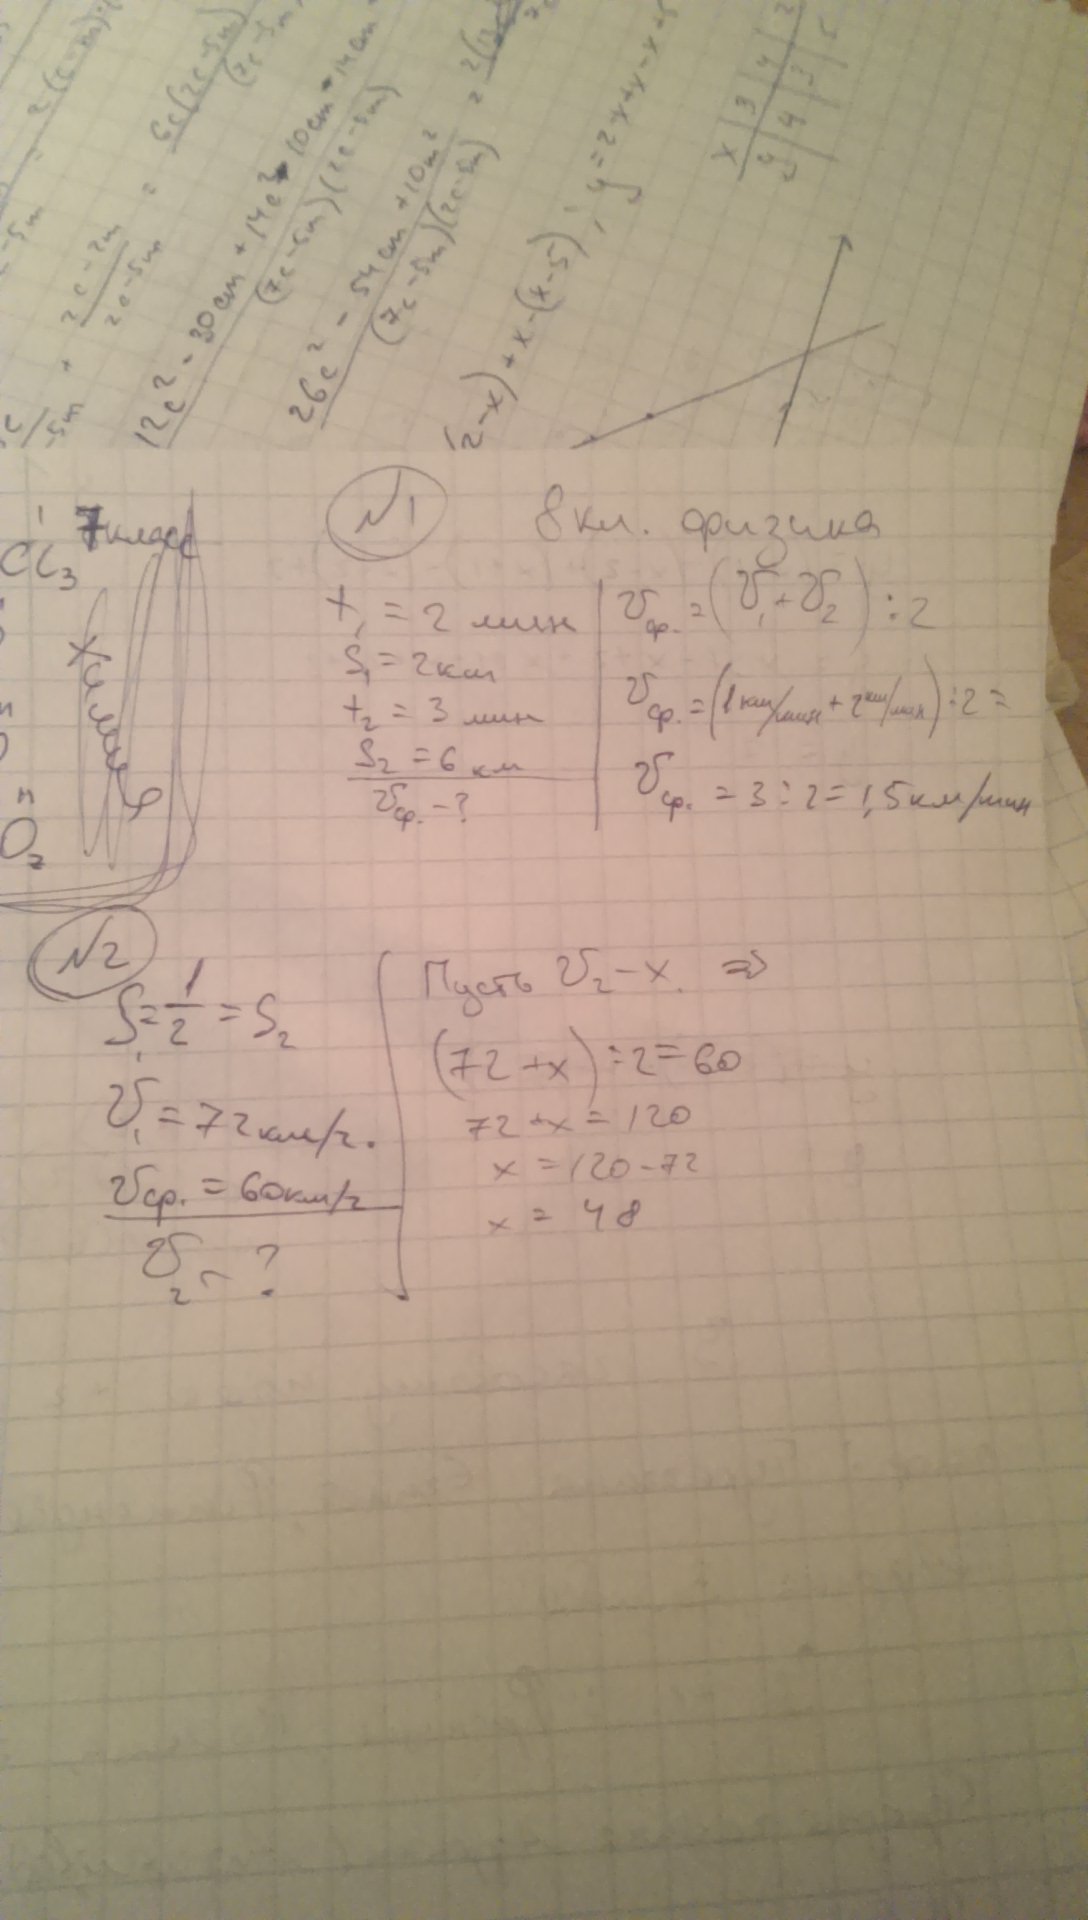 12c² - 30cm + 14c² - 10cm + 14cm
(7c-5m)(2c-5m)
26c² - 54cm + 10m²
(7c-5m)(2c-5m)
2c-2m
2c-5m
6c(2c-5m)
(2-x)+x-(x-5); y=2-x+x-x+5
x | 3 | 4 | 2
y | 4 | 3 | 5
7класс
CCl₃
Химия
O₂
№1
8кл. физика
t₁ = 2 мин
S₁ = 2км
t₂ = 3 мин
S₂ = 6 км
υср. - ?
υср. = (υ₁+υ₂):2
υср. = (1км/мин + 2км/мин):2 =
υср. = 3:2 = 1,5км/мин
№2
S₁ = 1/2 = S₂
υ₁ = 72км/ч.
υср. = 60км/ч
υ₂ - ?
Пусть υ₂ - x. ⇒
(72+x):2=60
72+x=120
x=120-72
x = 48